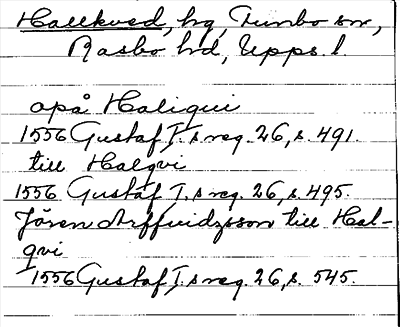 Hallkved, hg, Funbo sn,
Rasbo hd, Upps. l.
opå Haliqui
1556 Gustaf I:s reg. 26, s. 491.
till Halqvi
1556 Gustaf I:s reg. 26, s. 495.
Jören Arffuidzsson till Hal-
qvi
1556 Gustaf I:s reg. 26, s. 545.